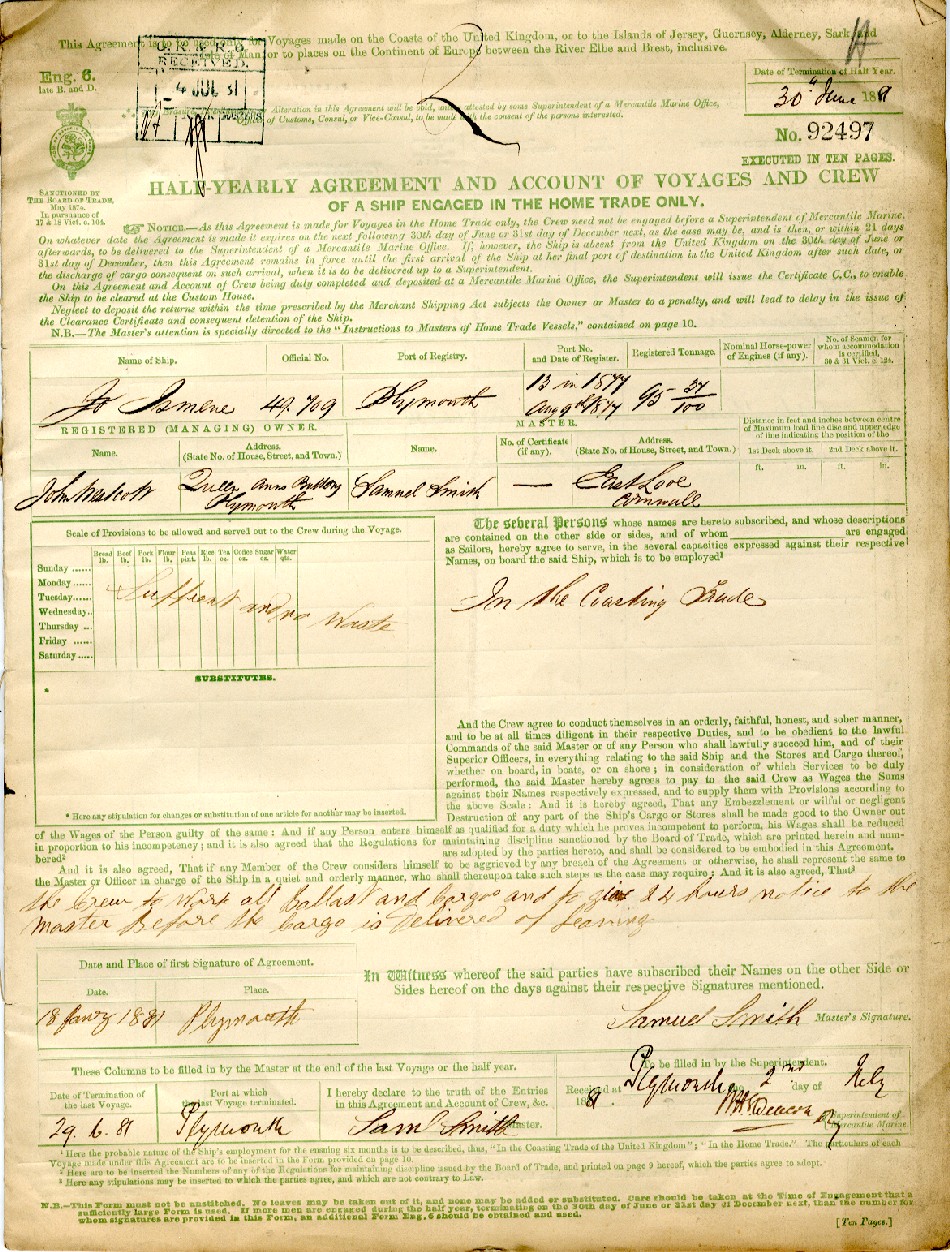 This Agreement is to be used only for Voyages made on the Coasts of the United Kingdom, or to the Islands of Jersey, Guernsey, Alderney, Sark and
Man, or to places on the Continent of Europe between the River Elbe and Brest, inclusive.
Eng. 6.
late B. and D.
RECEIVED.
4 JUL 81
Date of Termination of Half Year.
30th June 1881
Alteration in this Agreement will be void, unless attested by some Superintendent of a Mercantile Marine Office,
Officer of Customs, Consul, or Vice-Consul, to be made with the consent of the persons interested.
No. 92497
EXECUTED IN TEN PAGES.
SANCTIONED BY
THE BOARD OF TRADE,
May 1874.
In pursuance of
17 & 18 Vict. c. 104.
HALF-YEARLY AGREEMENT AND ACCOUNT OF VOYAGES AND CREW
OF A SHIP ENGAGED IN THE HOME TRADE ONLY.
NOTICE.—As this Agreement is made for Voyages in the Home Trade only, the Crew need not be engaged before a Superintendent of Mercantile Marine.
On whatever date the Agreement is made it expires on the next following 30th day of June or 31st day of December next, as the case may be, and is then, or within 21 days
afterwards, to be delivered to the Superintendent of a Mercantile Marine Office. If, however, the Ship is absent from the United Kingdom on the 30th day of June or
31st day of December, then this Agreement remains in force until the first arrival of the Ship at her final port of destination in the United Kingdom after such date, or
the discharge of cargo consequent on such arrival, when it is to be delivered up to a Superintendent.
On this Agreement and Account of Crew being duly completed and deposited at a Mercantile Marine Office, the Superintendent will issue the Certificate C.C., to enable
the Ship to be cleared at the Custom House.
Neglect to deposit the returns within the time prescribed by the Merchant Shipping Act subjects the Owner or Master to a penalty, and will lead to delay in the issue of
the Clearance Certificate and consequent detention of the Ship.
N.B.—The Master's attention is specially directed to the "Instructions to Masters of Home Trade Vessels," contained on page 10.
Name of Ship. Official No. Port of Registry. Port No. and Date of Register. Registered Tonnage. Nominal Horse-power of Engines (if any). No. of Seamen for whom accommodation is certified, 30 & 31 Vict. c. 124.
Ismene 49.709 Plymouth 13 in 1877 Aug 9th 1877 95 37/100
REGISTERED (MANAGING) OWNER. MASTER.
Distance in feet and inches between centre of Maximum load line disc and upper edge of line indicating the position of the
Name. Address. (State No. of House, Street, and Town.) Name. No. of Certificate (if any). Address. (State No. of House, Street, and Town.) 1st Deck above it. 2nd Deck above it.
ft. in. ft. in.
John Westcott Queen Anns Battery Plymouth Samuel Smith — East Looe Cornwall
Scale of Provisions to be allowed and served out to the Crew during the Voyage.
Bread lb. Beef lb. Pork lb. Flour lb. Peas pint. Rice lb. Tea oz. Coffee oz. Sugar oz. Water qts.
Sunday
Monday
Tuesday
Wednesday
Thursday
Friday
Saturday
Suffient and no Waste
SUBSTITUTES.
* Here any stipulation for changes or substitution of one article for another may be inserted.
The several Persons whose names are hereto subscribed, and whose descriptions
are contained on the other side or sides, and of whom are engaged
as Sailors, hereby agree to serve, in the several capacities expressed against their respective
Names, on board the said Ship, which is to be employed¹
In the Coasting Trade
And the Crew agree to conduct themselves in an orderly, faithful, honest, and sober manner,
and to be at all times diligent in their respective Duties, and to be obedient to the lawful
Commands of the said Master or of any Person who shall lawfully succeed him, and of their
Superior Officers, in everything relating to the said Ship and the Stores and Cargo thereof,
whether on board, in boats, or on shore; in consideration of which Services to be duly
performed, the said Master hereby agrees to pay to the said Crew as Wages the Sums
against their Names respectively expressed, and to supply them with Provisions according to
the above Scale: And it is hereby agreed, That any Embezzlement or wilful or negligent
Destruction of any part of the Ship's Cargo or Stores shall be made good to the Owner out
of the Wages of the Person guilty of the same: And if any Person enters himself as qualified for a duty which he proves incompetent to perform, his Wages shall be reduced
in proportion to his incompetency; and it is also agreed that the Regulations for maintaining discipline sanctioned by the Board of Trade, which are printed herein and num-
bered² are adopted by the parties hereto, and shall be considered to be embodied in this Agreement.
And it is also agreed, That if any Member of the Crew considers himself to be aggrieved by any breach of the Agreement or otherwise, he shall represent the same to
the Master or Officer in charge of the Ship in a quiet and orderly manner, who shall thereupon take such steps as the case may require: And it is also agreed, That³
the Crew to Work all ballast and Cargos and to give 24 hours notice to the
Master Before the Cargo is Delivered of Leaving
Date and Place of first Signature of Agreement.
Date. Place.
18 Janry 1881 Plymouth
In Witness whereof the said parties have subscribed their Names on the other Side or
Sides hereof on the days against their respective Signatures mentioned.
Samuel Smith Master's Signature.
These Columns to be filled in by the Master at the end of the last Voyage or the half year.
To be filled in by the Superintendent.
Date of Termination of the last Voyage. Port at which the last Voyage terminated.
I hereby declare to the truth of the Entries
in this Agreement and Account of Crew, &c.
29. 6. 81 Plymouth Saml Smith Master.
Received at Plymouth 2nd day of
Superintendent of Mercantile Marine
¹ Here the probable nature of the Ship's employment for the ensuing six months is to be described, thus, "In the Coasting Trade of the United Kingdom"; "In the Home Trade." The particulars of each
Voyage made under this Agreement are to be inserted in the Form provided on page 10.
² Here are to be inserted the Numbers of any of the Regulations for maintaining discipline issued by the Board of Trade, and printed on page 9 hereof, which the parties agree to adopt.
³ Here any stipulations may be inserted to which the parties agree, and which are not contrary to Law.
N.B.—This Form must not be unstitched. No leaves may be taken out of it, and none may be added or substituted. Care should be taken at the Time of Engagement that a
sufficiently large Form is used. If more men are engaged during the half year, terminating on the 30th day of June or 31st day of December next, than the number for
whom signatures are provided in this Form, an additional Form Eng. 6 should be obtained and used.
[Ten Pages.]